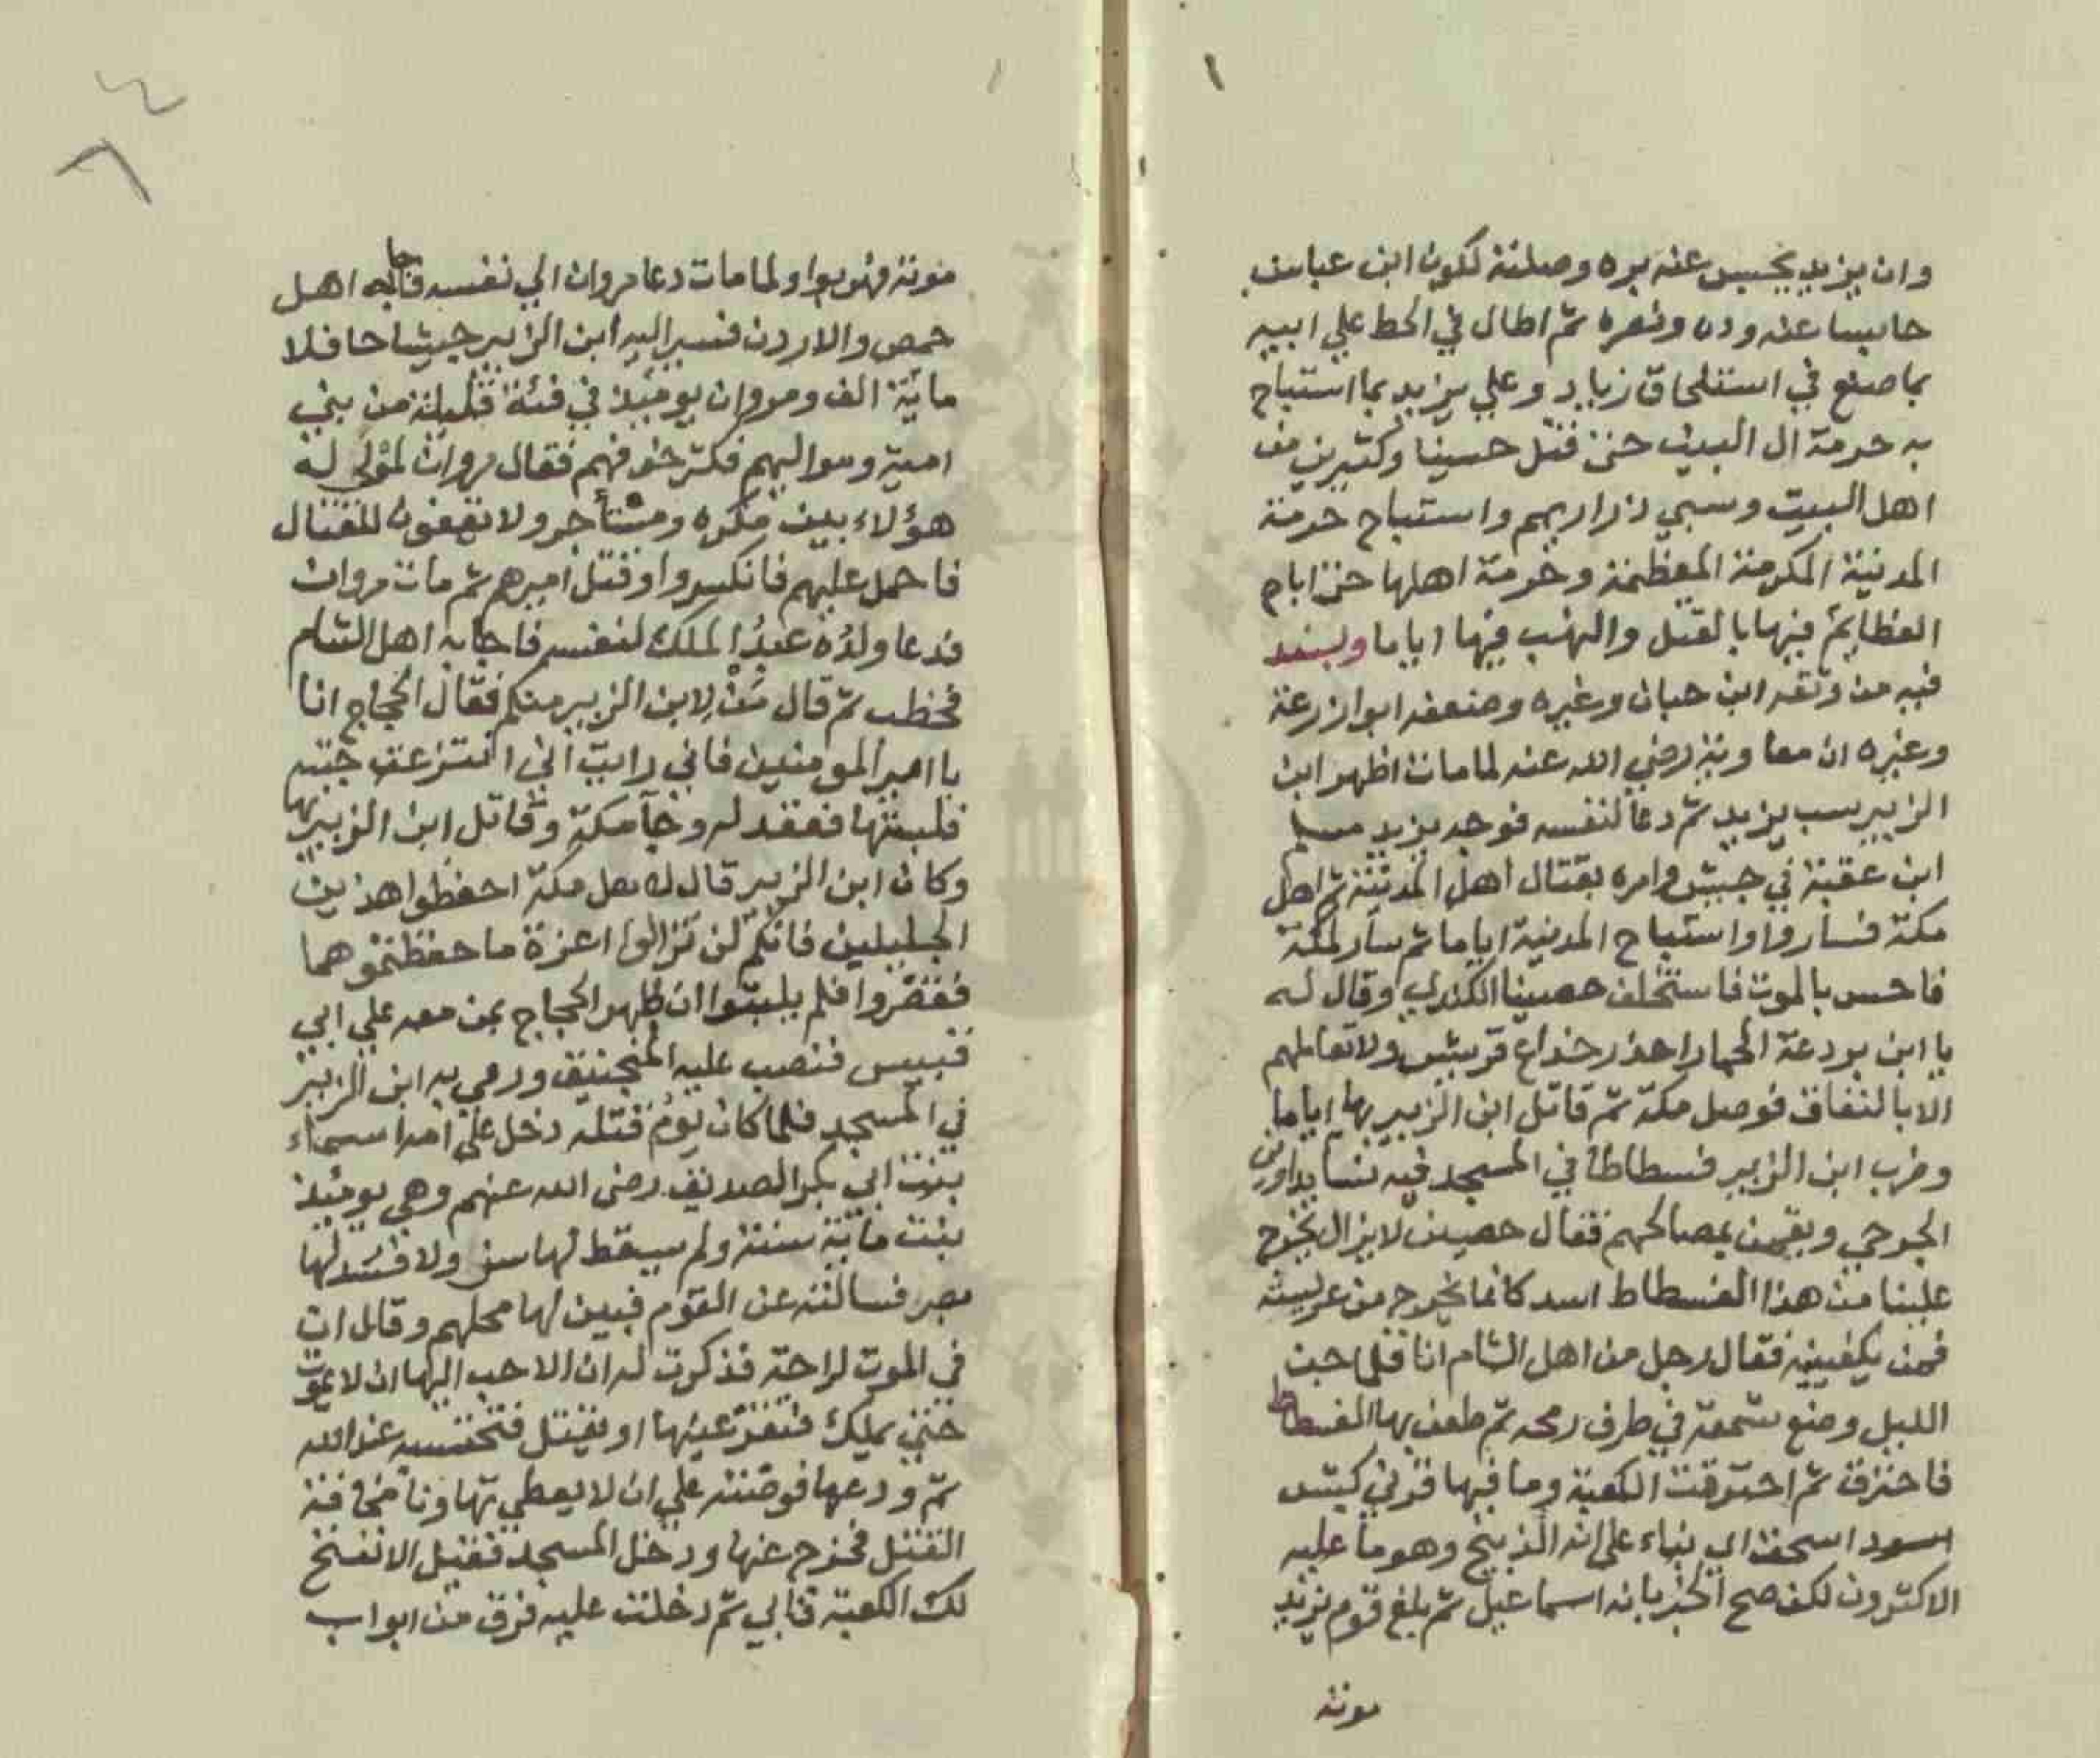 وان يزيد يحبس عنه بره وصلته لكون ابن عباس
حابسا عنه وده ونصره ثم اطال في الحط علي ابيه
بما صنع في استلحاق زياد وعلي يزيد بما استباح
به حرمة ال البيت حتى قتل حسينا وكثيرين من
اهل البيت وسبي ذراريهم واستباح حرمة
المدينة المكرمة المعظمة وحرمة اهلها حتى اباح
العظايم فيها بالقتل والنهب فيها اياما وبسند
فيه من وثقه ابن حبان وغيره وضعفه ابوا زرعة
وغيره ان معاوية رضي الله عنه لما مات اظهر ابن
الزبير سب يزيد ثم دعا لنفسه فوجه يزيد مسلم
ابن عقبة في جيش وامره بقتال اهل المدينة ثم اهل
مكة فساروا واستباح المدينة اياما ثم سار لمكة
فاحس بالموت فاستخلف حصينا الكندي وقال له
يا ابن بردعة الحمار احذر خداع قريش ولا تعاملهم
الا بالنفاق فوصل مكة ثم قاتل ابن الزبير بها اياما
وضرب ابن الزبير فسطاطا في المسجد فيه نسا يداوين
الجرحي ويقمن بمصالحهم فقال حصين لا يزال يخرج
علينا من هذا الفسطاط اسد كانما يخرج من عرينه
فمن يكفينيه فقال رجل من اهل الشام انا فلما جن
الليل وضع شمعة في طرف رمحه ثم طعن بها الفسطاط
فاحترق ثم احترقت الكعبة وما فيها قرني كبش
اسحق اي بناء على انه الذبيح وهو ما عليه
الاكثرون لكن صح الخبر بانه اسماعيل ثم بلغ قوم يزيد
موته
موته فهربوا ولما مات دعا مروان الي نفسه فاجابه اهل
حمص والاردن فسير اليه ابن الزبير جيشا حافلا
ماية الف ومروان يومئذ في فئة قليلة من بني
امية ومواليهم فكثر خوفهم فقال مروان لمولي له
هؤلاء بين مكره ومستأجر ولا يقفون للقتال
فاحمل عليهم فانكسروا وقتل اميرهم ثم مات مروان
فدعا ولده عبد الملك لنفسه فاجابه اهل الشام
فخطب ثم قال من لابن الزبير منكم فقال الحجاج انا
يا امير المومنين فاني رايت اني انتزعت جبته
فلبستها فعقد له وجآ مكة وقاتل ابن الزبير بها
وكان ابن الزبير قال لاهل مكة احفظوا هذين
الجبلين فانكم لن تزالوا اعزة ما حفظتموهما
فقصروا فلم يلبثوا ان ظهر الحجاج بمن معه علي ابي
قبيس فنصب عليه المنجنيق ورمي به ابن الزبير
في المسجد فلما كان يوم قتله دخل على امه اسماء
بنت ابي بكر الصديق رضى الله عنهم وهي يومئذ
بنت ماية سنة ولم يسقط لها سن ولا فسد لها
بصر فسالته عن القوم فبين لها محلهم وقال ان
في الموت لراحة فذكرت له ان الاحب اليها ان لا يموت
حتى يملك فتقر عينها او يقتل فتحتسبه عند الله
ثم ودعها فوصته علي ان لا يعطي تهاونا مخافة
القتل فخرج عنها ودخل المسجد فقيل الا نفتح
لك الكعبة فابي ثم دخلت عليه فرق من ابواب